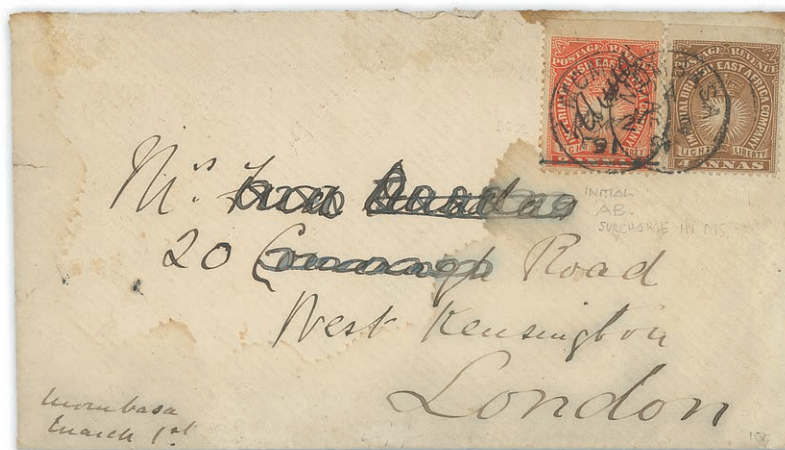 POSTAGE & REVENUE
IMPERIAL BRITISH EAST AFRICA COMPANY
LIGHT LIBERTY
POSTAGE & REVENUE
IMPERIAL BRITISH EAST AFRICA COMPANY
LIGHT LIBERTY
4 ANNAS
INITIAL
A.B.
SURCHARGE IN MS
Mrs
20 Road
West Kensington
London
Mombasa
March 1st